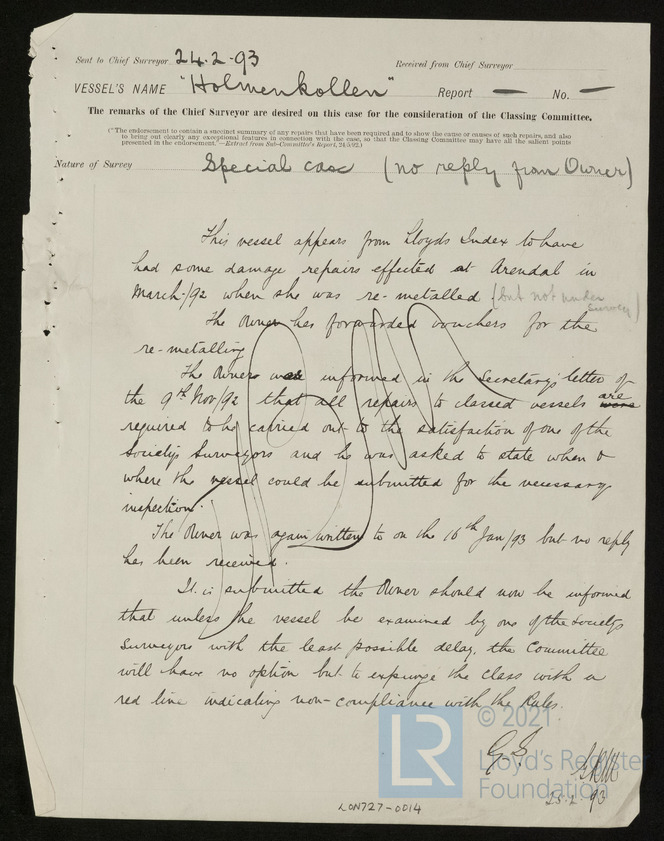 Sent to Chief Surveyor 24.2.93 Received from Chief Surveyor
VESSEL'S NAME "Holmenkollen" Report — No. —
The remarks of the Chief Surveyor are desired on this case for the consideration of the Classing Committee.
("The endorsement to contain a succinct summary of any repairs that have been required and to show the cause or causes of such repairs, and also
to bring out clearly any exceptional features in connection with the case, so that the Classing Committee may have all the salient points
presented in the endorsement."—Extract from Sub-Committee's Report, 24/5/92.)
Nature of Survey Special case (no reply from Owner)
This vessel appears from Lloyds Index to have
had some damage repairs effected at Arendal in
March/92 when she was re-metalled (but not under
survey)
The Owner has forwarded vouchers for the
re-metalling
The Owners were informed in the Secretary's letter of
the 9th Nov/92 that all repairs to classed vessels are
were
required to be carried out to the satisfaction of one of the
Society's Surveyors and he was asked to state when &
where the vessel could be submitted for the necessary
inspection.
The Owner was again written to on the 16th Jan/93 but no reply
has been received.
It is submitted the Owner should now be informed
that unless the vessel be examined by one of the Society's
Surveyors with the least possible delay, the Committee
will have no option but to expunge the class with a
red line indicating non-compliance with the Rules.
25.2.93
LON727-0014
LR © 2021
Lloyd's Register
Foundation